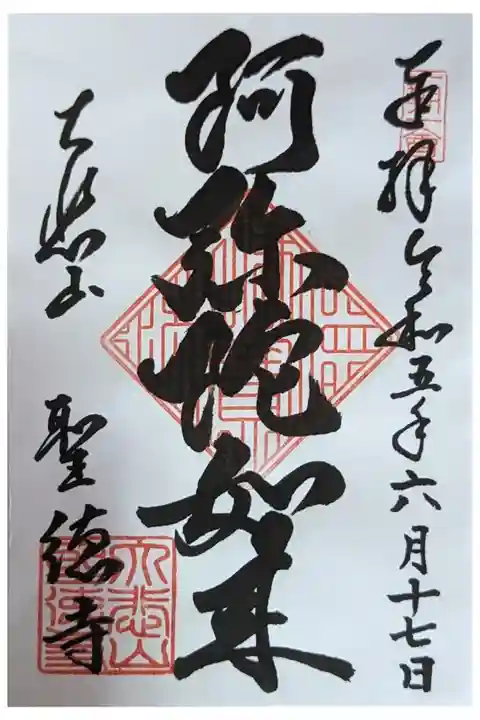 奉拝 令和五年六月十七日
阿弥陀如来
大悲山
聖徳寺